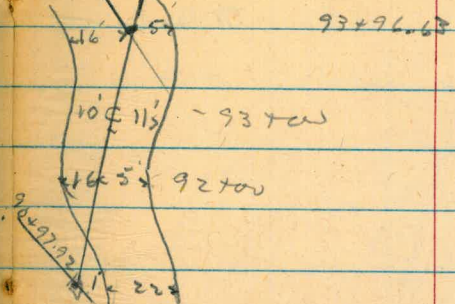 16' 5' 93+96.63
10' ℄ 11' - 93+00
16 5' 92+00
90+97.92
1' 22